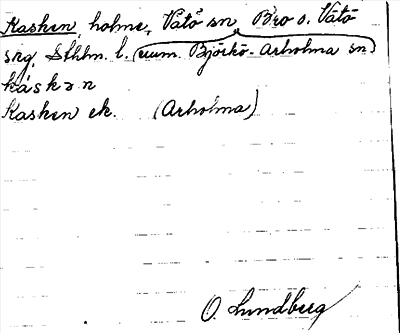 Kasken, holme, Vätö sn, Bro o. Vätö
skg, Sthlm. l. (num. Björkö-Arholma sn)
káskən
Kasken ek. (Arholma)
O. Lundberg